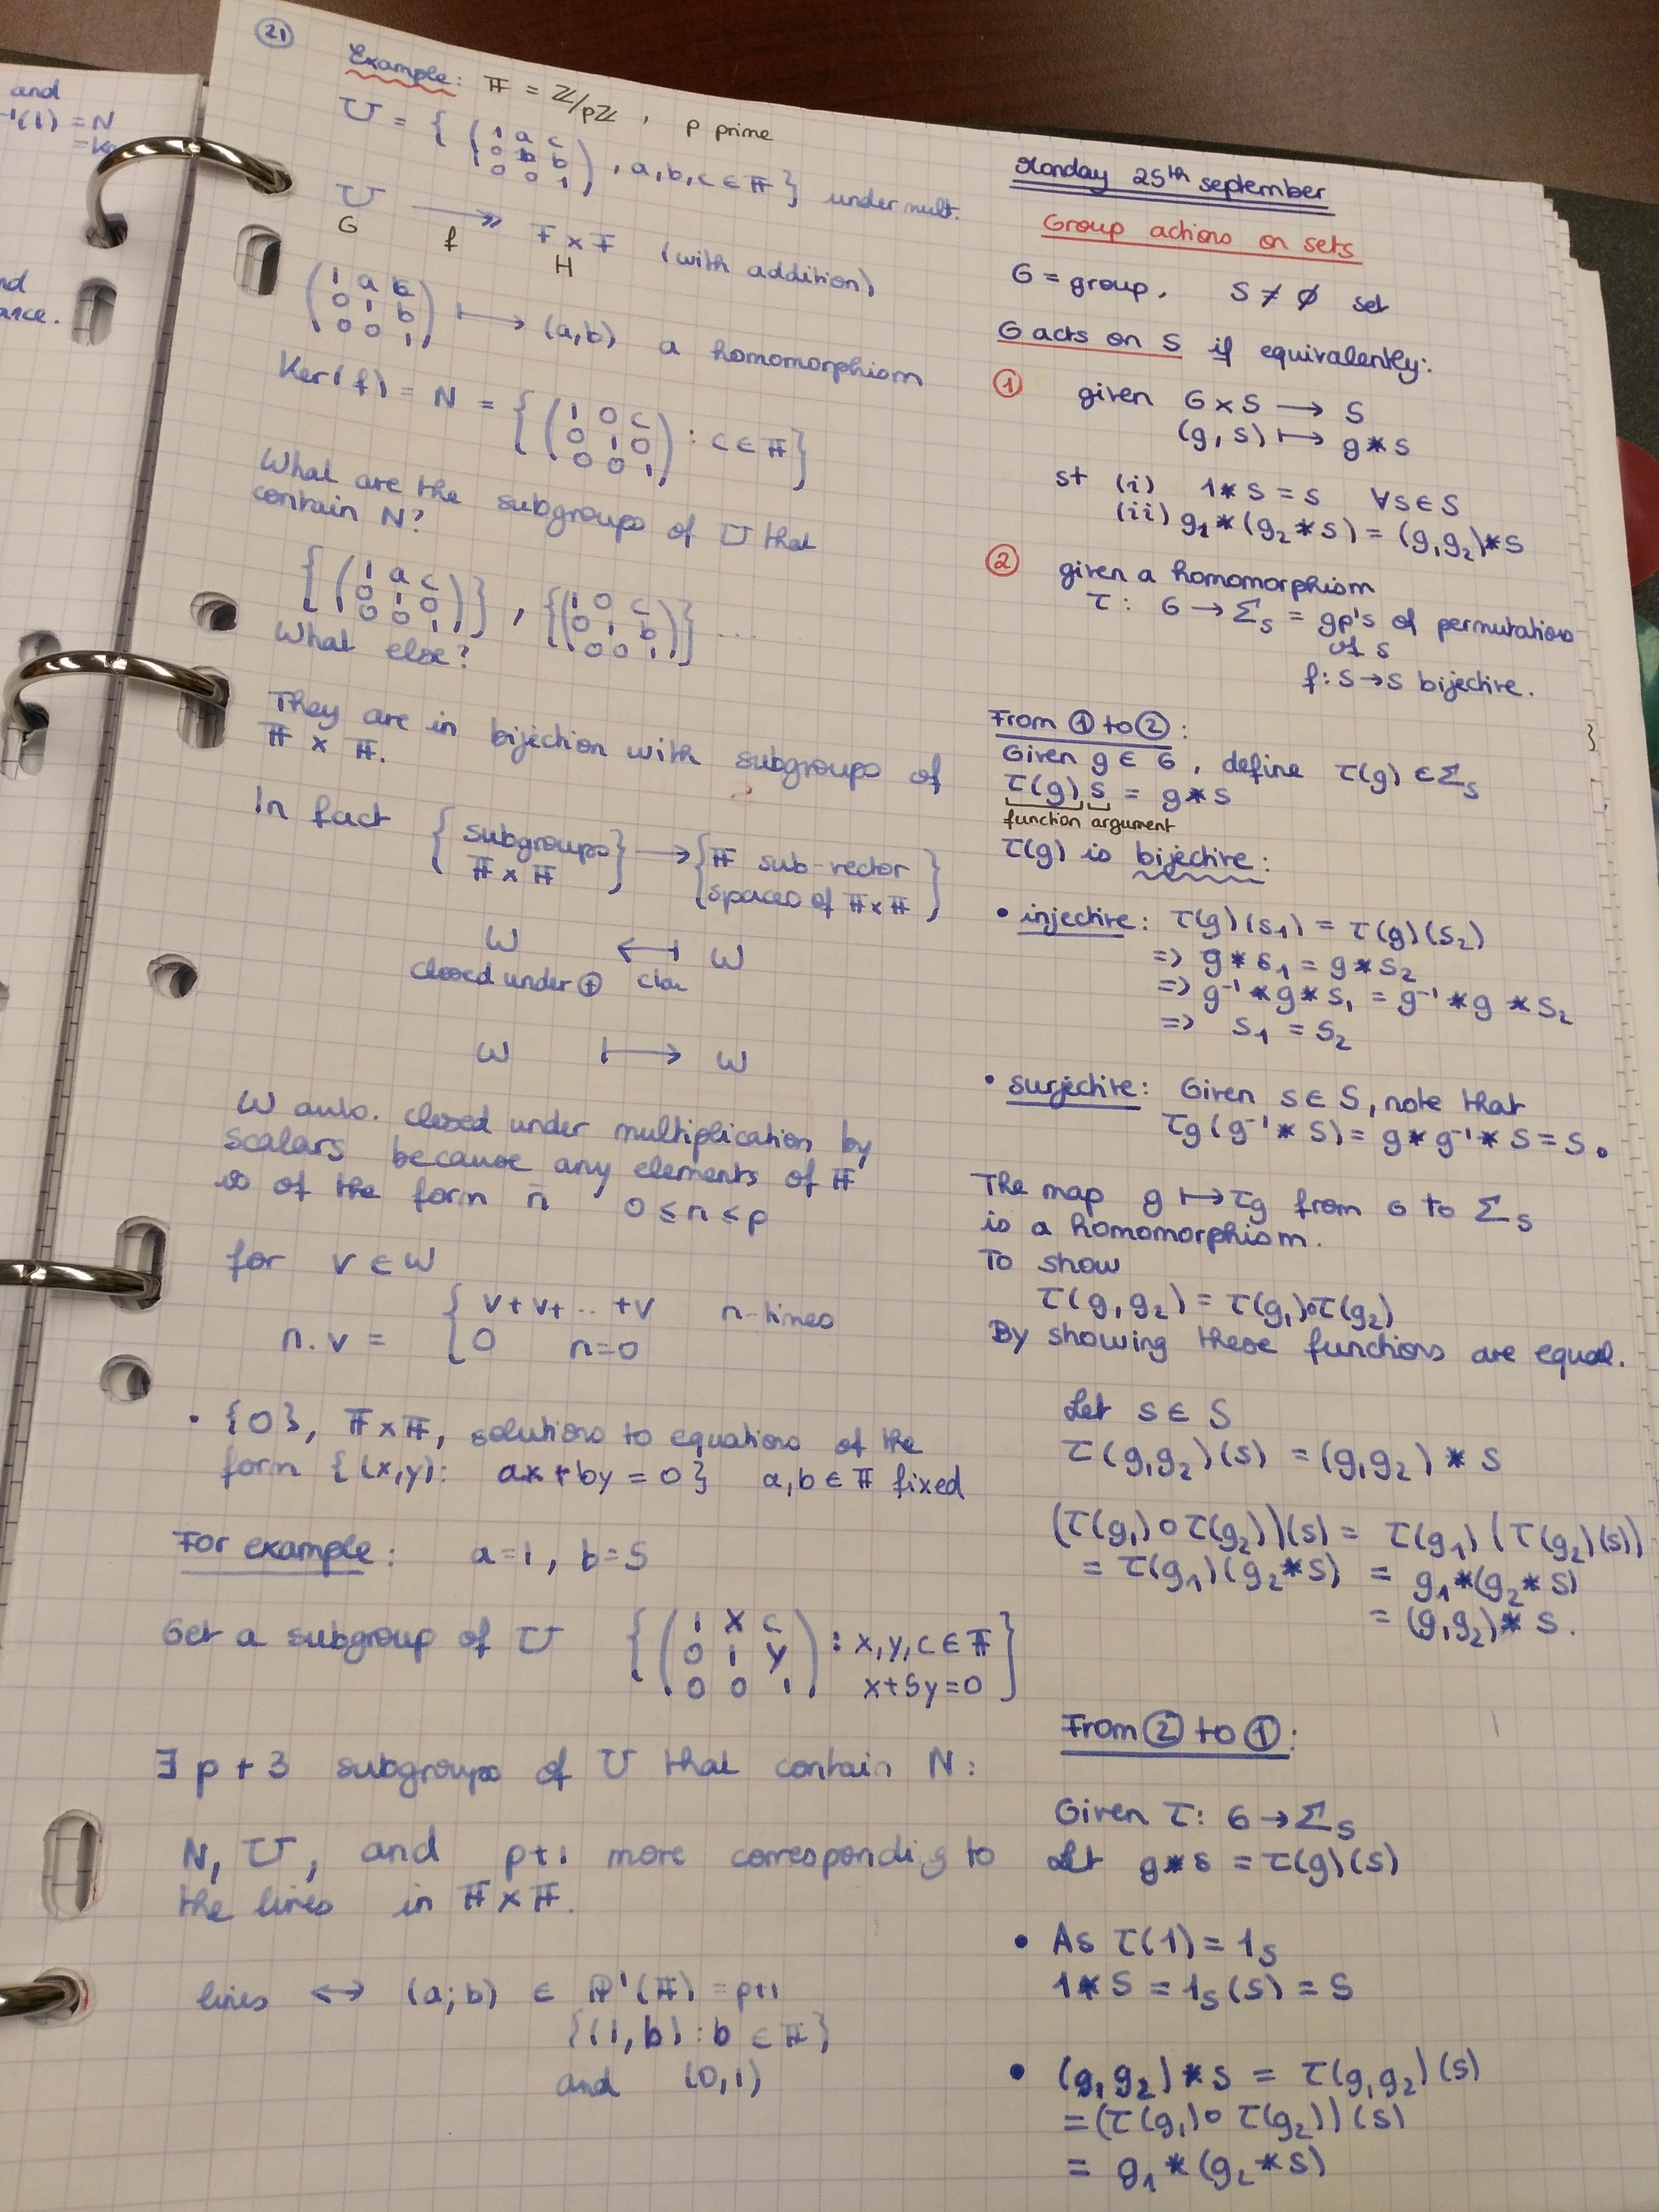 and
⁻¹(1) = N
21
Example: 𝔽 = ℤ/pℤ , p prime
U = { ( 1 a c
0 b b
0 0 1 ) , a,b,c ∈ 𝔽 } under mult.
U →→ F × F (with addition)
G f H
( 1 a c
0 1 b
0 0 1 ) ↦ (a,b) a homomorphism
Ker(f) = N = { ( 1 0 c
0 1 0
0 0 1 ) : c ∈ 𝔽 }
What are the subgroups of U that
contain N?
{ ( 1 a c
0 1 0
0 0 1 ) } , { ( 1 0 c
0 1 b
0 0 1 ) } ....
What else?
They are in bijection with subgroups of
𝔽 × 𝔽.
In fact { subgroups
𝔽 × 𝔽 } → { 𝔽 sub-vector
spaces of 𝔽 × 𝔽 }
W ↤ W
closed under ⊕ clear
W ↦ W
W auto. closed under multiplication by
scalars because any elements of 𝔽
is of the form n̄ 0 ≤ n < p
for v ∈ W
n.v = { v+v+ .. +v n-times
0 n=0
• {0}, 𝔽×𝔽, solutions to equations of the
form {(x,y): ax+by = 0} a,b ∈ 𝔽 fixed
For example: a=1, b=5
Get a subgroup of U { ( 1 x c
0 1 y
0 0 1 ) : x,y,c ∈ 𝔽
x+5y=0 }
∃ p+3 subgroups of U that contain N:
N, U, and p+1 more corresponding to
the lines in 𝔽 × 𝔽.
lines ↔ (a;b) ∈ ℙ¹(𝔽) = p+1
{(1,b) : b ∈ 𝔽}
and (0,1)
Monday 25th september
Group actions on sets
G = group, S ≠ ∅ set
G acts on S if equivalently:
① given G × S → S
(g,s) ↦ g * s
st (i) 1 * s = s ∀s ∈ S
(ii) g₁*(g₂*s) = (g₁g₂)*s
② given a homomorphism
τ : G → Σ_S = gp's of permutations
of s
f: S → S bijective.
From ① to ②:
Given g ∈ G, define τ(g) ∈ Σ_S
τ(g) s = g * s
function argument
τ(g) is bijective:
• injective: τ(g)(s₁) = τ(g)(s₂)
=> g * s₁ = g * s₂
=> g⁻¹ * g * s₁ = g⁻¹ * g * s₂
=> s₁ = s₂
• surjective: Given s ∈ S, note that
τg(g⁻¹ * s) = g * g⁻¹ * s = s.
The map g ↦ τg from G to Σ_S
is a homomorphism.
To show
τ(g₁g₂) = τ(g₁)∘τ(g₂)
By showing these functions are equal.
Let s ∈ S
τ(g₁g₂)(s) = (g₁g₂) * s
(τ(g₁)∘τ(g₂))(s) = τ(g₁)(τ(g₂)(s))
= τ(g₁)(g₂*s) = g₁*(g₂*s)
= (g₁g₂)* s.
From ② to ①:
Given τ: G → Σ_S
Let g*s = τ(g)(s)
• As τ(1) = 1_S
1*s = 1_S(s) = s
• (g₁g₂)*s = τ(g₁g₂)(s)
= (τ(g₁)∘τ(g₂))(s)
= g₁*(g₂*s)